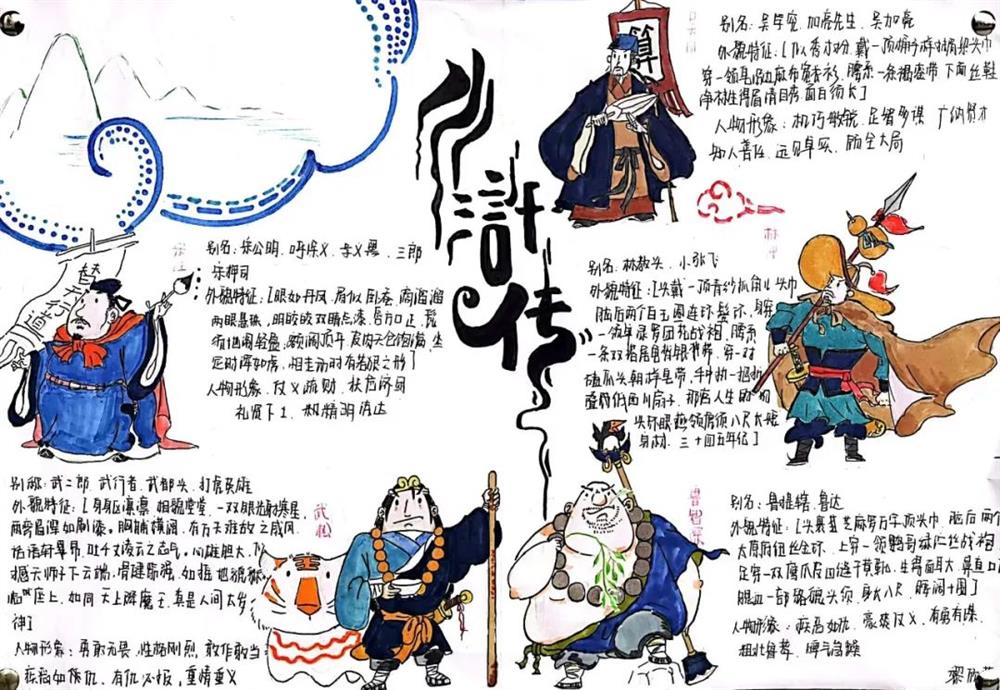 水浒传
吴用
算
别名：吴学究、加亮先生、吴加亮
穿一领皂沿边麻布宽衫，腰系一条褐鸾带 下面丝鞋
净袜生得眉清目秀 面白须长]
人物形象：机巧敏锐 足智多谋 广纳贤才
知人善任、远见卓实、顾全大局
宋江
替天行道
别名：宋公明、呼保义、孝义黑三郎
宋押司
外貌特征：[眼如丹凤 眉似卧蚕 滴溜溜
两眼悬珠，明皎皎双睛点漆、唇方口正，髭
须地阁轻盈，额阔顶平，皮肉天仓饱满，坐
定时浑如虎，相走动时有若狼之形]
人物形象：仗义疏财、扶危济困
礼贤下士、极精明清达
林冲
别名：林教头、小张飞
外貌特征：[头戴一顶青纱抓角儿头巾
脑后两个白玉圈连珠鬓环，身穿
一领单绿罗团花战袍，腰系
一条双搭尾龟背银带，穿一对
磕瓜头朝样皂带，手中执一把折
叠纸西川扇子，那官人生的豹
头环眼燕颔虎须八尺长短
身材、三十四五年纪]
武松
别称：武二郎、武行者、武都头、打虎英雄
外貌特征：[身躯凛凛 相貌堂堂、一双眼光射寒星，
两弯眉浑如刷漆，胸脯横阔、有万夫难敌之威风，
话语轩昂，吐千丈凌云之志气，心雄胆大，似
撼天狮子下云端，骨健筋强，如摇地貔貅
临座上、如同天上降魔王，真是人间太岁
神]
人物形象：勇敢无畏、性格刚烈、敢作敢当
疾恶如仇、有仇必报，重情重义
鲁智深
别名：鲁提辖、鲁达
外貌特征：[头裹芝麻罗万字顶头巾，脑后两个
太原府纽丝金环，上穿一领鹦哥绿纻丝战袍
足穿一双鹰爪皮四缝干黄靴，生得面圆大，鼻直口
腮边一部貉䝙胡须，身长八尺、腰阔十围]
人物形象：疾恶如仇、豪爽仗义、有勇有谋、
粗犷鲁莽、脾气急躁